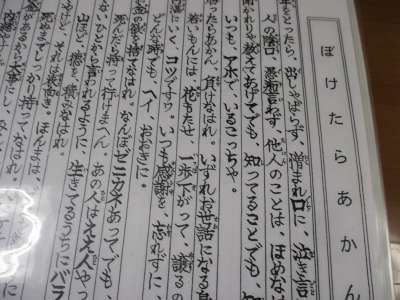 ぼけたらあかん
年をとったら、出しゃばらず、憎まれ口に、泣き言
人の陰口、愚痴言わず、他人のことは、ほめな
聞かれりゃ教えてあげてでも、知ってることでも、
いつも、アホで、いるこっちゃ。
ったらあかん、負けなはれ。いずれお世話になる身
若いもんには、花もたせ、一歩下がって、譲るの
にいく、コツですわ。いつも感謝を、忘れずに、
どんな時でも、ヘイ、おおきに。
金の欲を、捨てなはれ。なんぼゼニカネあってでも、
死んだら持って行けまへん。あの人はええ人やっ
ないひとから言われるように、生きてるうちにバラ
山ほど、徳を、積みなはれ。
やけど、それは表向き。ほんまは、
死ぬまでしっかり持ってなはれ。